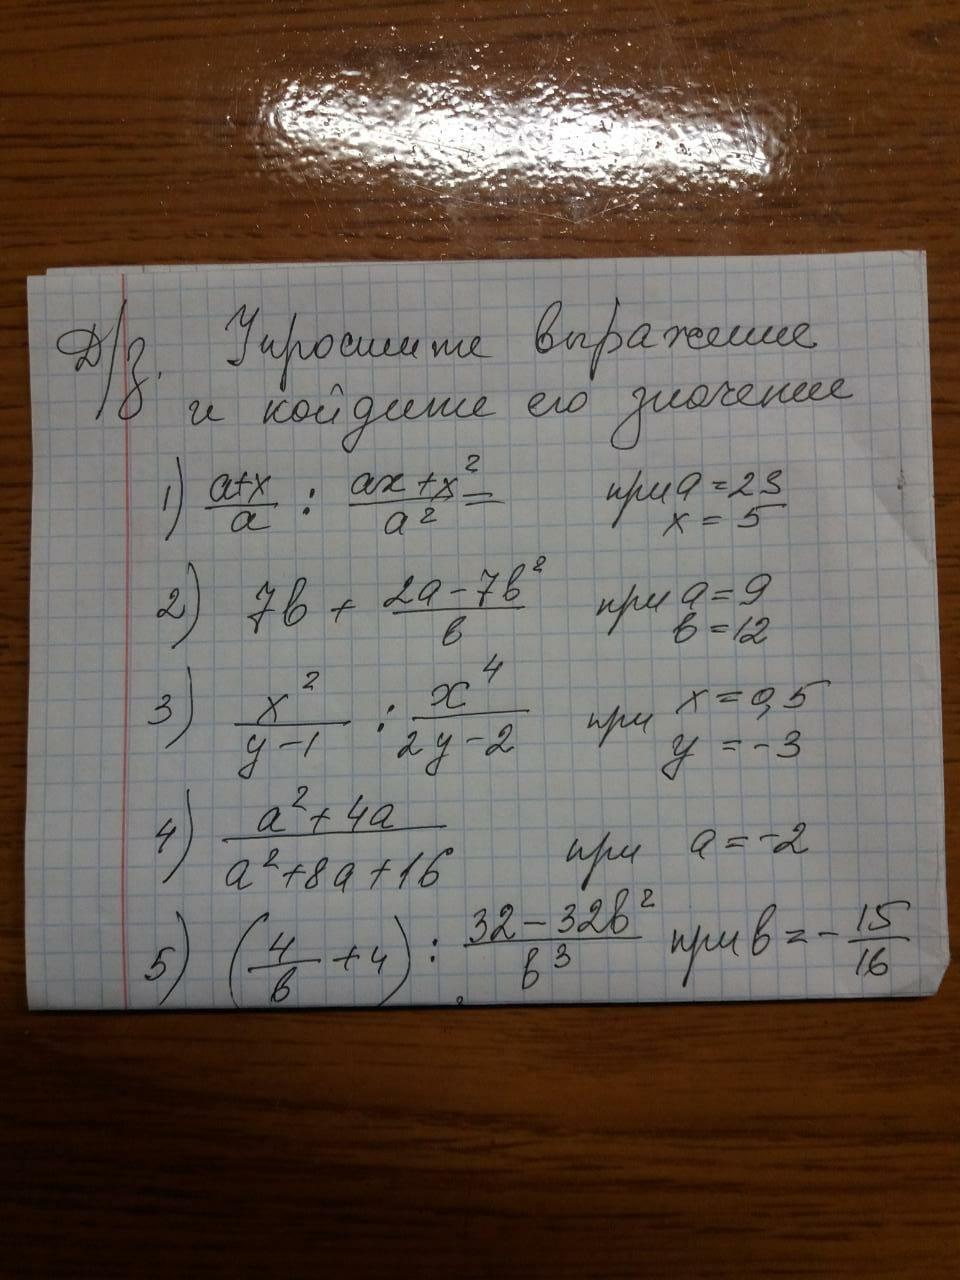 Д/з. Упростите выражение
и найдите его значение
1) (a+x)/a : (ax+x²)/a² = при a=23
x=5
2) 7b + (2a-7b²)/b при a=9
b=12
3) x²/(y-1) : x⁴/(2y-2) при x=0,5
y=-3
4) (a²+4a)/(a²+8a+16) при a=-2
5) (4/b + 4) : (32-32b²)/b³ при b=-15/16